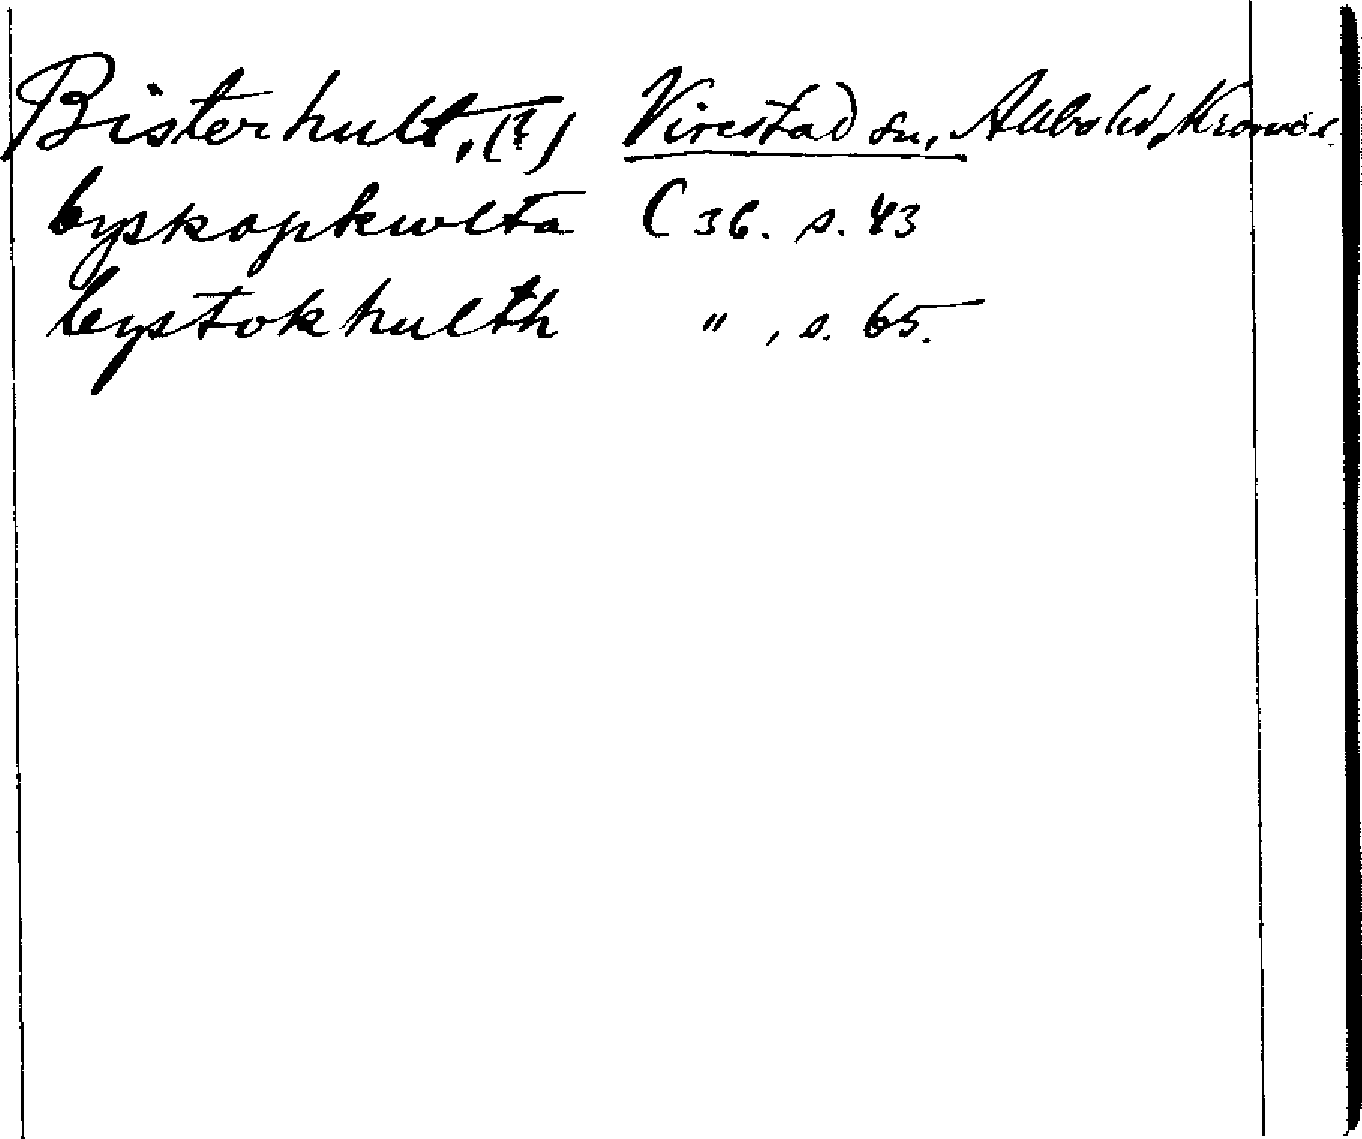 Bisterhult, (?) Virestad sn, Allbo hd, Kronob.
byskopkwlta C 36. s. 43
bystokhulth " , s. 65.